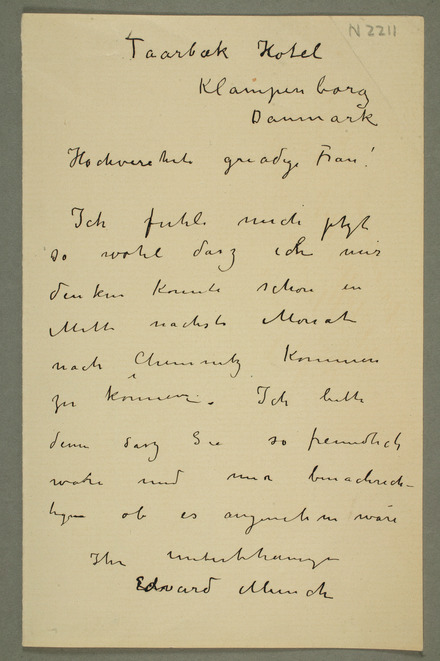 N 2211
Taarbæk Hotel
Klampenborg
Danmark
Hochverehrte gnadige Frau!
Ich fuhle mich jetzt
so wohl dasz ich mir
denken konnte schon in
Mitte nachste Monat
nach Chemnitz kommen
zu können. Ich bitte
denn dasz Sie so freundlich
wäre und mir benachrich-
tigen ob es angenehm wäre
Ihr
Edvard Munch